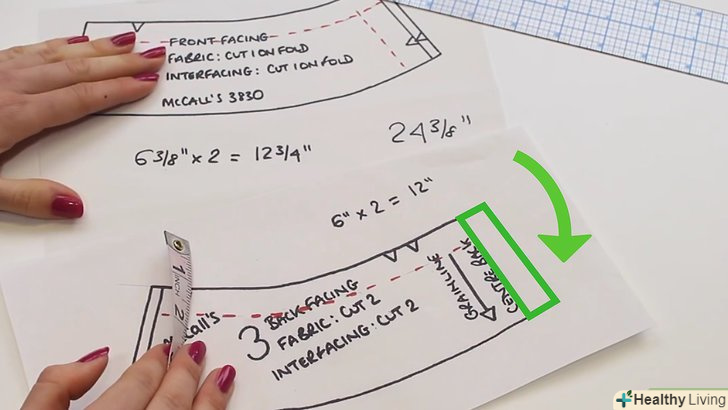 FRONT FACING
FABRIC: CUT 1 ON FOLD
INTERFACING: CUT 1 ON FOLD
McCALL'S 3830
6 3/8" x 2 = 12 3/4"
24 3/8"
6" x 2 = 12"
GRAINLINE
CENTRE BACK
1
INCH
2
call's
3
BACK FACING
FABRIC: CUT 2
INTERFACING: CUT 2
Healthy Living